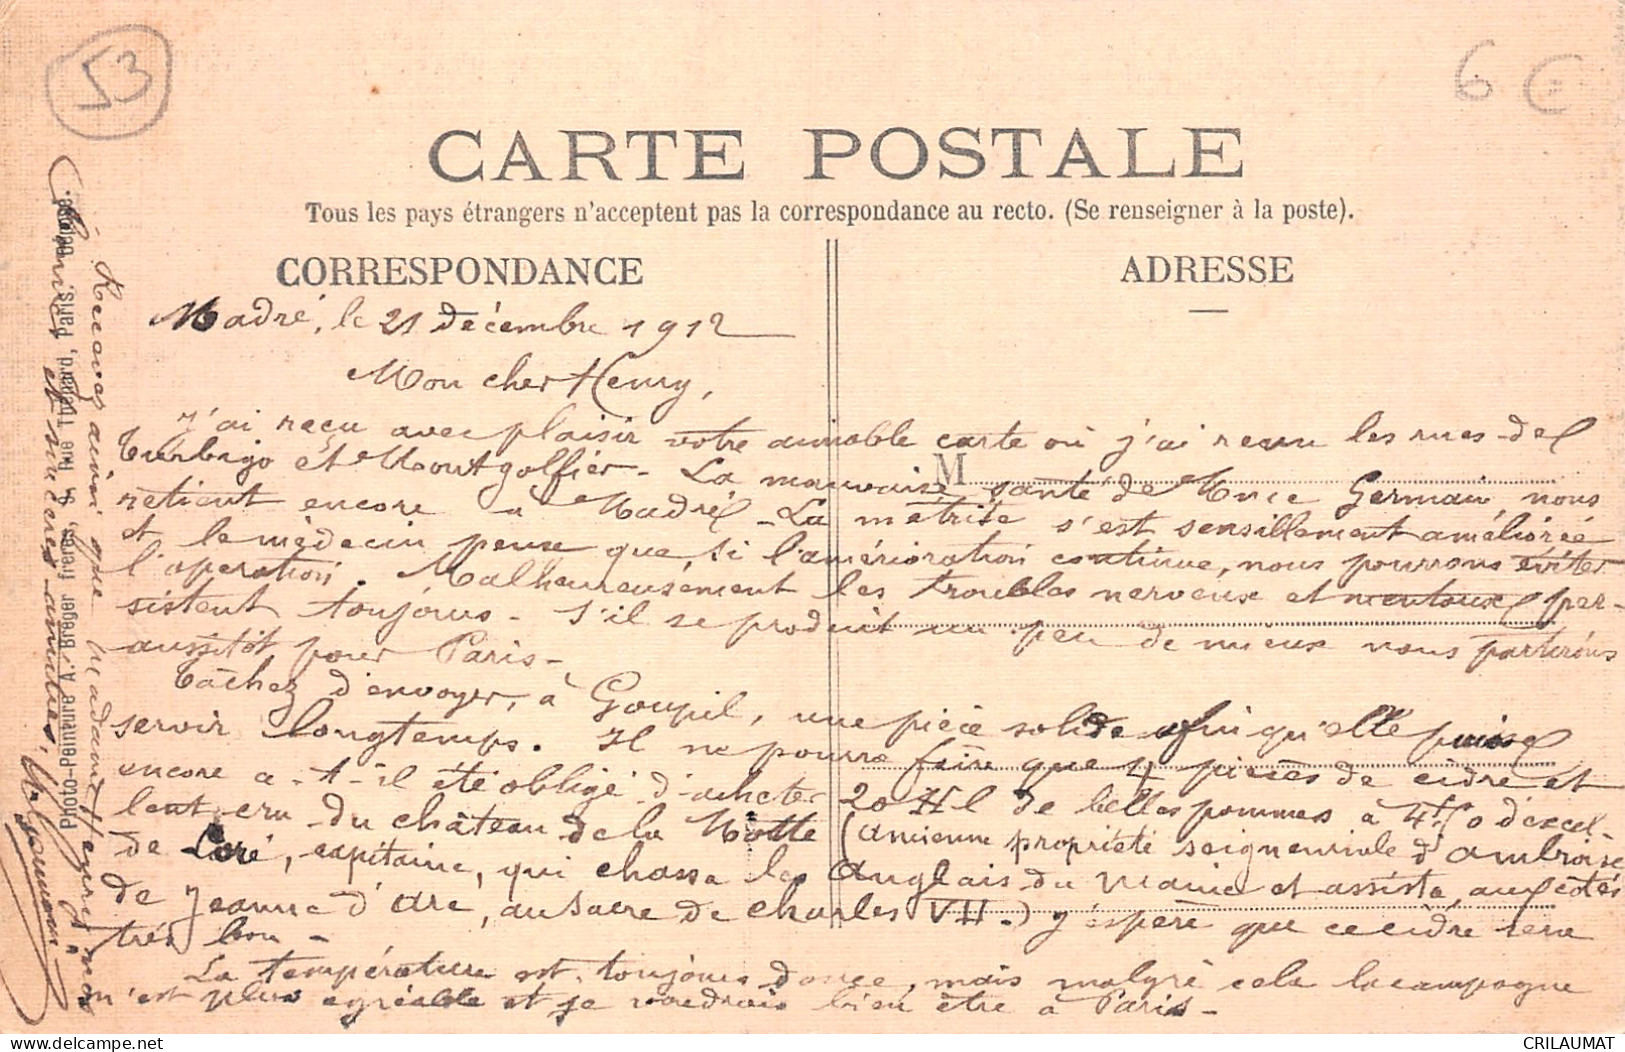 53
6 €
CARTE POSTALE
Tous les pays étrangers n'acceptent pas la correspondance au recto. (Se renseigner à la poste).
CORRESPONDANCE
ADRESSE
M
Madré, le 21 décembre 1912
Mon cher Henry,
J'ai reçu avec plaisir votre aimable carte où j'ai revu les rues de
Turbigo et Montgolfier - La mauvaise santé de Mme Germain, nous
retient encore à Madré - La métrite s'est sensillement améliorée
et le médecin pense que si l'amérioration continue, nous pourrons éviter
l'opération. Malheureusement les troubles nerveux et mentaux per-
sistent toujours. S'il se produit un peu de mieux nous partirons
aussitôt pour Paris -
Tâchez d'envoyer, à Goupil, une pièce solide afin qu'elle puisse
servir longtemps. Il ne pourra faire que 4 pièces de cidre et
encore a-t-il été obligé d'acheter 20 Hl de belles pommes à 4f50 d'excel-
lent cru du château de la Motte (ancienne propriété seigneuriale d'Ambroise
de Loré, capitaine, qui chassa les Anglais du Maine et assista, aux côtés
de Jeanne d'Arc, au Sacre de Charles VII.) J'espère que ce cidre sera
très bon -
La température est toujours douce, mais malgré cela la campagne
n'est plus agréable et je voudrais bien être à Paris -
Recevez ainsi que Madame Henry nos
bonnes et sincères amitiés,
Photo-Peinture A. Breger frères, 9, Rue Thénard, Paris. Déposé.
CRILAUMAT